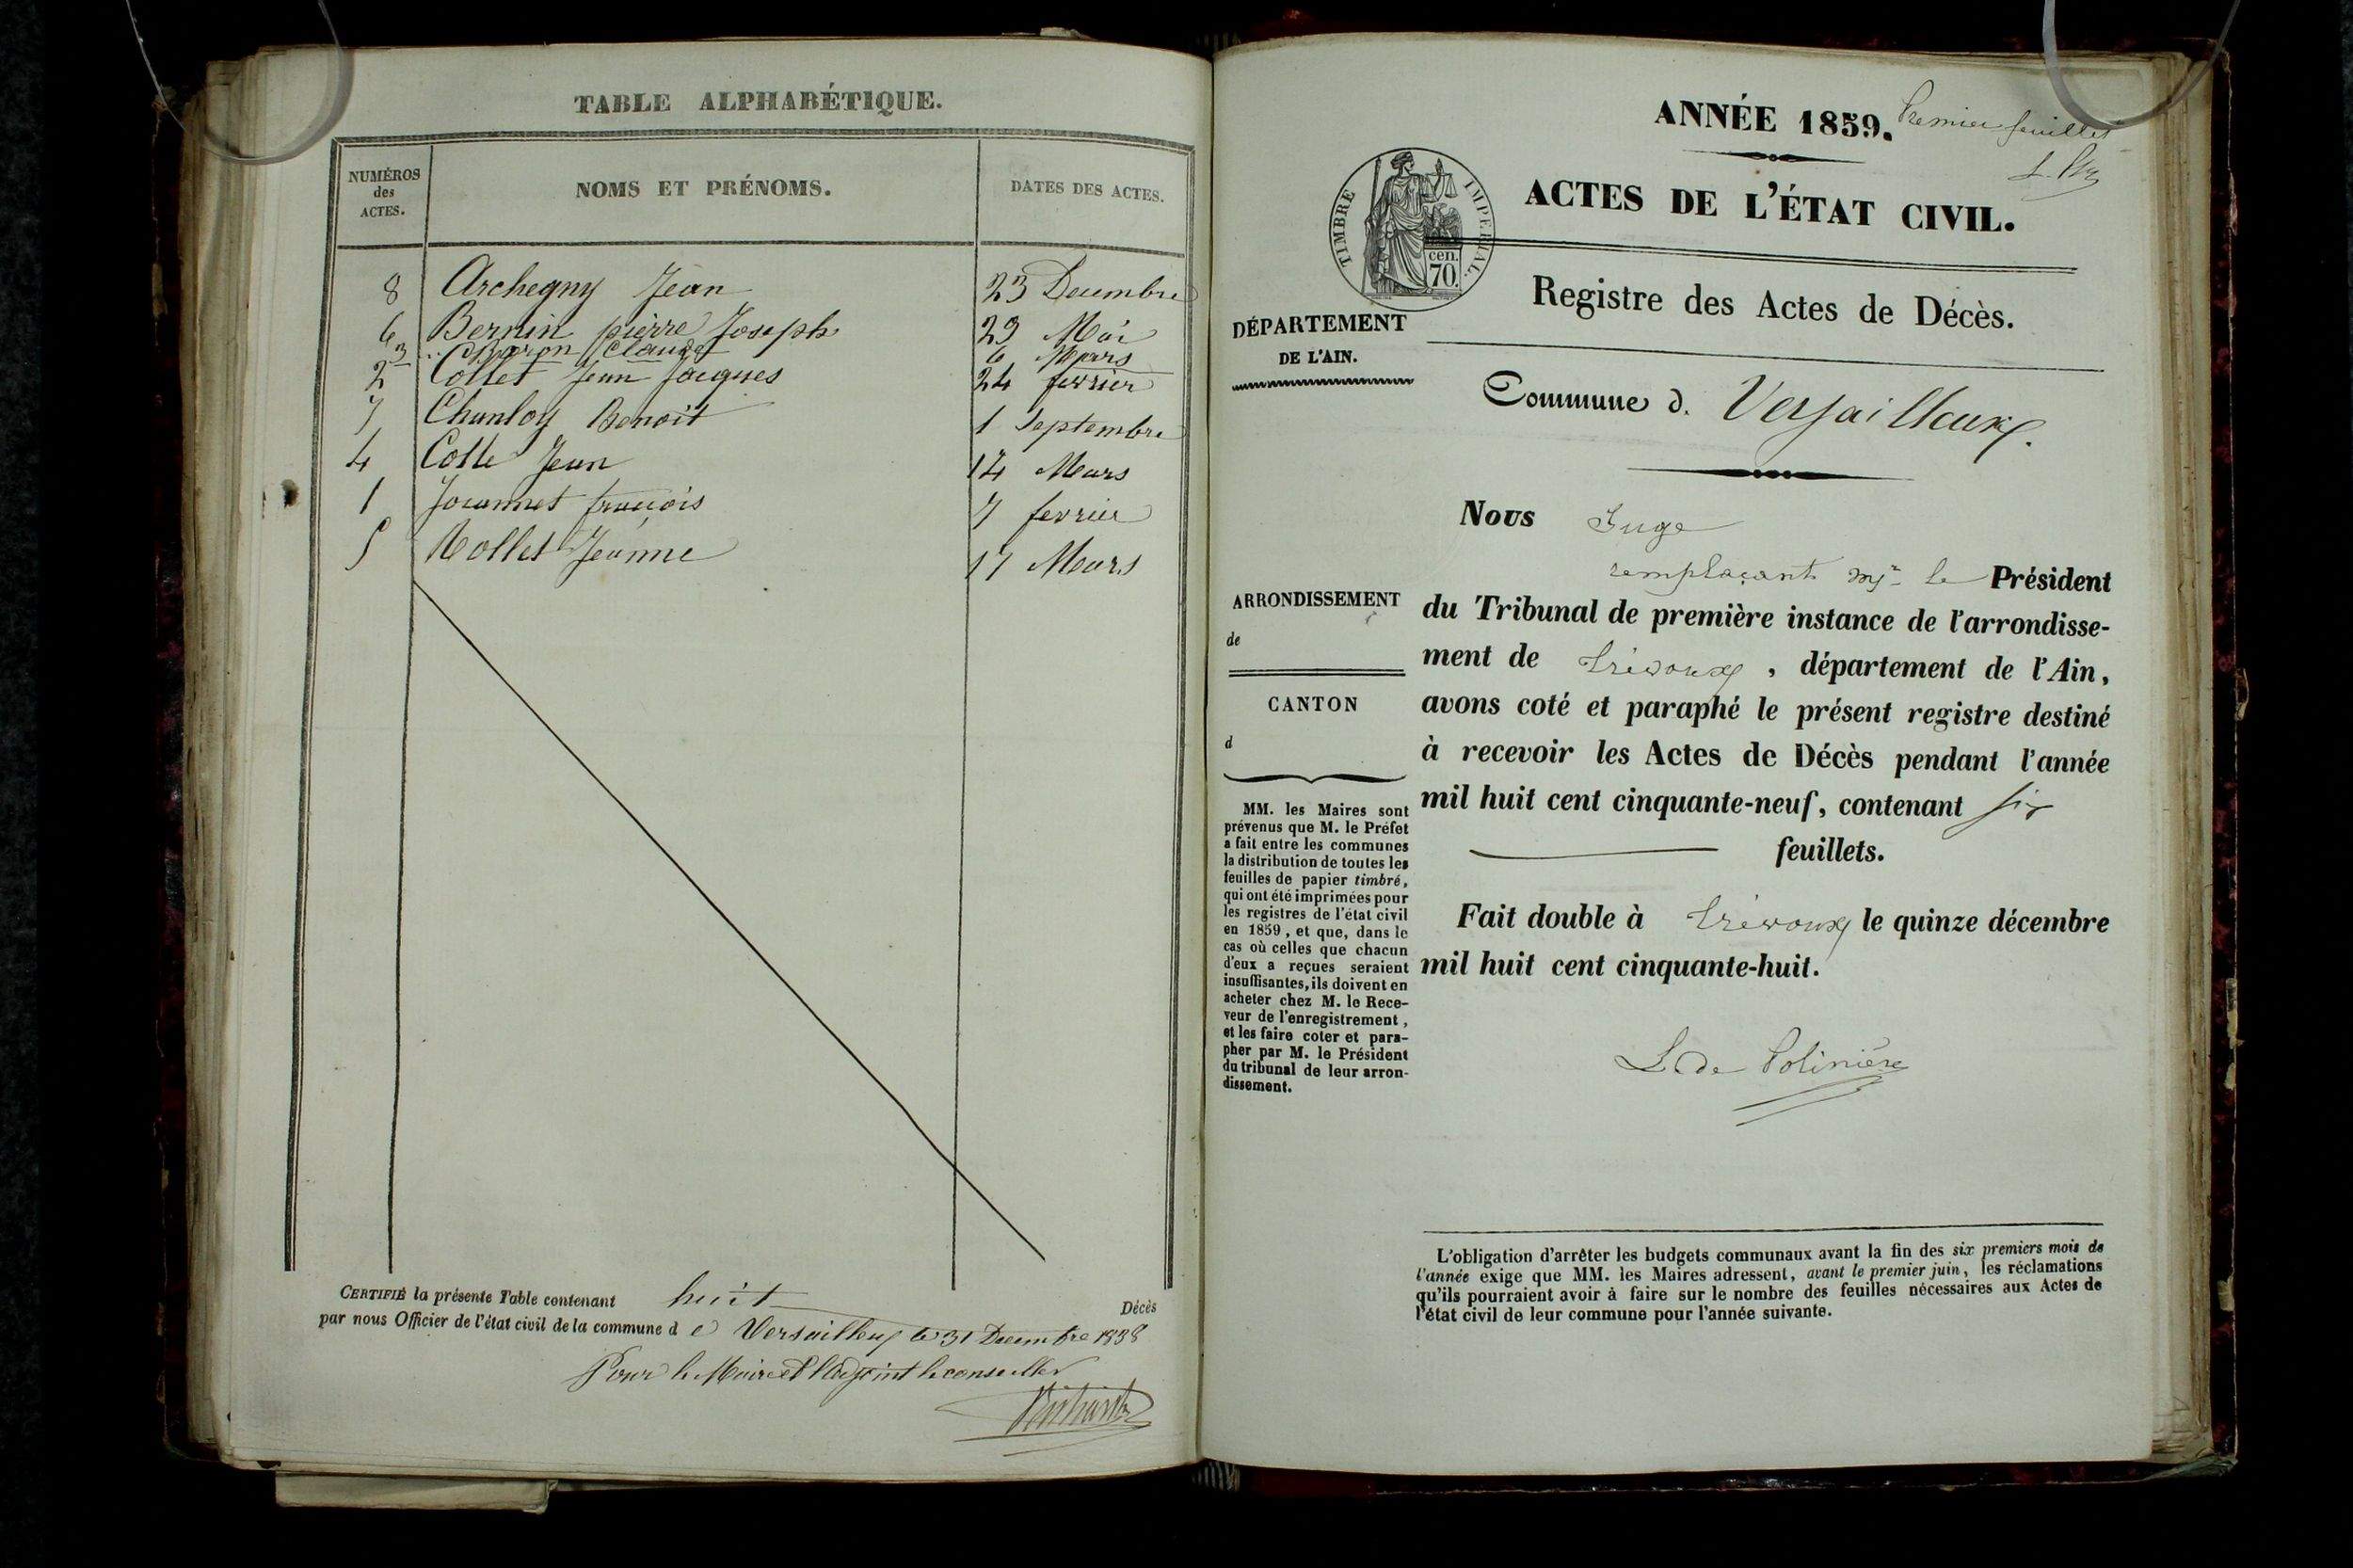 TABLE ALPHABÉTIQUE.
NUMÉROS
des
ACTES.
NOMS ET PRÉNOMS.
DATES DES ACTES.
8 Archegny Jean 23 Decembre
6 Bernin pierre Joseph 29 Mai
3 Claude 6 Mars
2 Collet Jean Jacques 24 fevrier
7 Chanloy Benoit 1 Septembre
4 Colle Jean 14 Mars
1 Jouannet francois 7 fevrier
5 Mollet Jeanne 17 Mars
CERTIFIÉ la présente Table contenant huit Décès
par nous Officier de l'état civil de la commune de Versailleux le 31 Decembre 1858
Pour le Maire et l'adjoint le conseiller
ANNÉE 1859.
Premier feuillet
ACTES DE L'ÉTAT CIVIL.
TIMBRE IMPERIAL.
cen.
70.
Registre des Actes de Décès.
DÉPARTEMENT
DE L'AIN.
Commune d. Versailleux.
Nous Juge
remplaçant Mr le Président
du Tribunal de première instance de l'arrondisse-
ment de Trévoux, département de l'Ain,
avons coté et paraphé le présent registre destiné
à recevoir les Actes de Décès pendant l'année
mil huit cent cinquante-neuf, contenant six
feuillets.
Fait double à Trévoux le quinze décembre
mil huit cent cinquante-huit.
L. de Polinière
ARRONDISSEMENT
de
CANTON
d
MM. les Maires sont
prévenus que M. le Préfet
a fait entre les communes
la distribution de toutes les
feuilles de papier timbré,
qui ont été imprimées pour
les registres de l'état civil
en 1859, et que, dans le
cas où celles que chacun
d'eux a reçues seraient
insuffisantes, ils doivent en
acheter chez M. le Rece-
veur de l'enregistrement,
et les faire coter et para-
pher par M. le Président
du tribunal de leur arron-
dissement.
L'obligation d'arrêter les budgets communaux avant la fin des six premiers mois de
l'année exige que MM. les Maires adressent, avant le premier juin, les réclamations
qu'ils pourraient avoir à faire sur le nombre des feuilles nécessaires aux Actes de
l'état civil de leur commune pour l'année suivante.